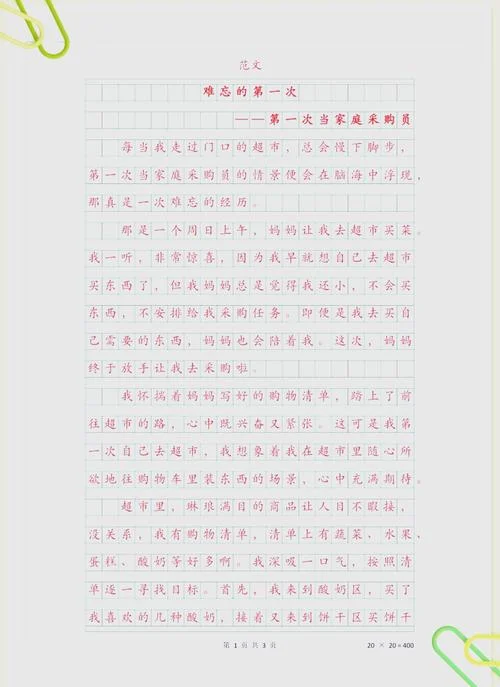 范文
难忘的第一次
——第一次当家庭采购员
每当我走过门口的超市，总会慢下脚步，
第一次当家庭采购员的情景便会在脑海中浮现，
那真是一次难忘的经历。
那是一个周日上午，妈妈让我去超市买菜。
我一听，非常惊喜，因为我早就想自己去超市
买东西了，但我妈妈总是觉得我还小，不会买
东西，不安排给我采购任务。即便是我去买自
己需要的东西，妈妈也会陪着我。这次，妈妈
终于放手让我去采购啦。
我怀揣着妈妈写好的购物清单，踏上了前
往超市的路，心中既兴奋又紧张。这可是我第
一次自己去超市，我想象着我在超市里随心所
欲地往购物车里装东西的场景，心中充满期待。
超市里，琳琅满目的商品让人目不暇接，
没关系，我有购物清单，清单上有蔬菜、水果、
蛋糕、酸奶等好多啊。我深吸一口气，按照清
单逐一寻找目标。首先，我来到酸奶区，买了
我喜欢的几种酸奶，接着又来到饼干区买饼干
第 1 页 共 3 页
20 × 20 = 400